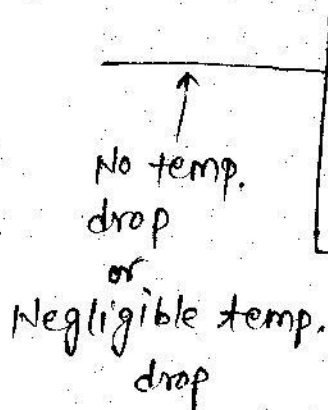 No temp.
drop
or
Negligible temp.
drop